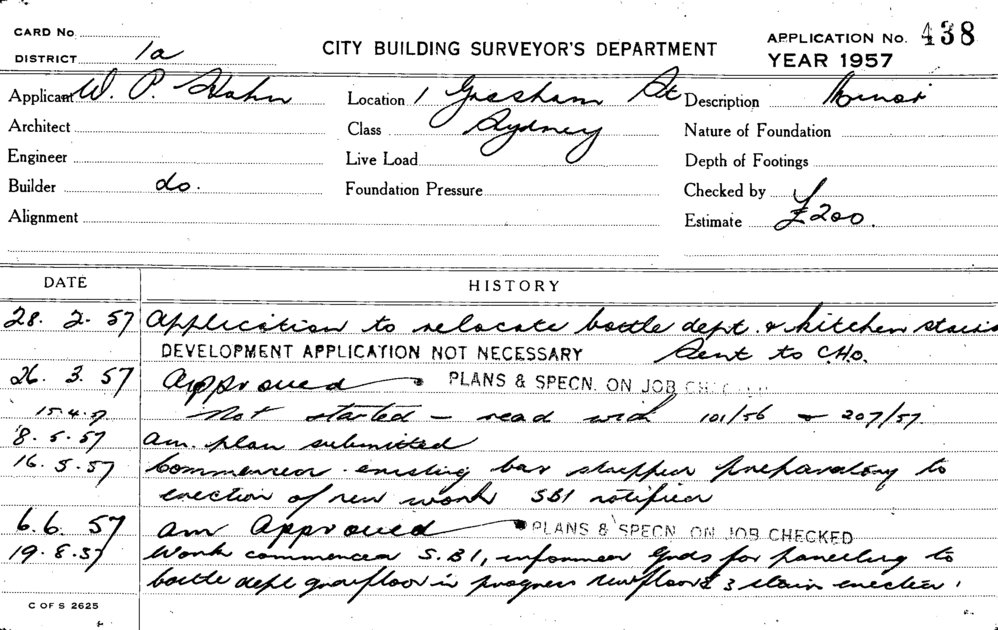 CARD No.
DISTRICT 1a
CITY BUILDING SURVEYOR'S DEPARTMENT
APPLICATION No. 438
YEAR 1957
Applicant W. P. Hahn
Location 1 Gresham St
Description Minor
Architect
Class Sydney
Nature of Foundation
Engineer
Live Load
Depth of Footings
Builder do.
Foundation Pressure
Checked by
Alignment
Estimate £200.
DATE HISTORY
28. 2. 57 Application to relocate bottle dept. & kitchen stairs
DEVELOPMENT APPLICATION NOT NECESSARY Sent to C.H.O.
26. 3. 57 Approved PLANS & SPECN. ON JOB CHECKED
15.4.57 Not started - read with 101/56 & 207/57.
8. 5. 57 am. plan submitted
16. 5. 57 Commenced existing bar stripped preparatory to
erection of new work SBI notified
6. 6. 57 am Approved PLANS & SPECN. ON JOB CHECKED
19. 8. 57 Work commenced S.B.I, informed for panelling to
bottle dept floor in progress & stairs erection
C OF S 2625